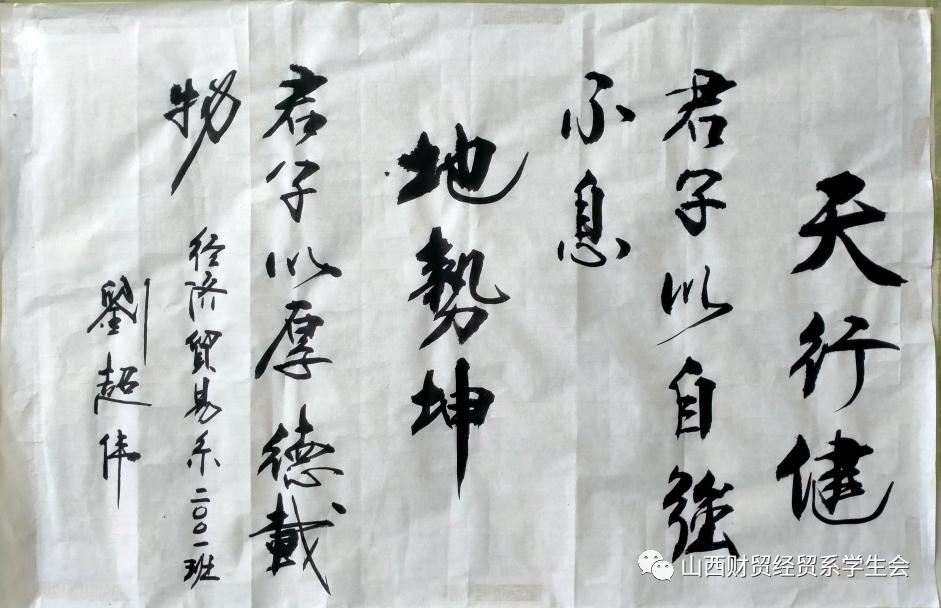 天行健
君子以自強
不息
地勢坤
君子以厚德載
物
经济貿易系二〇〇一班
劉超伟
山西财贸经贸系学生会